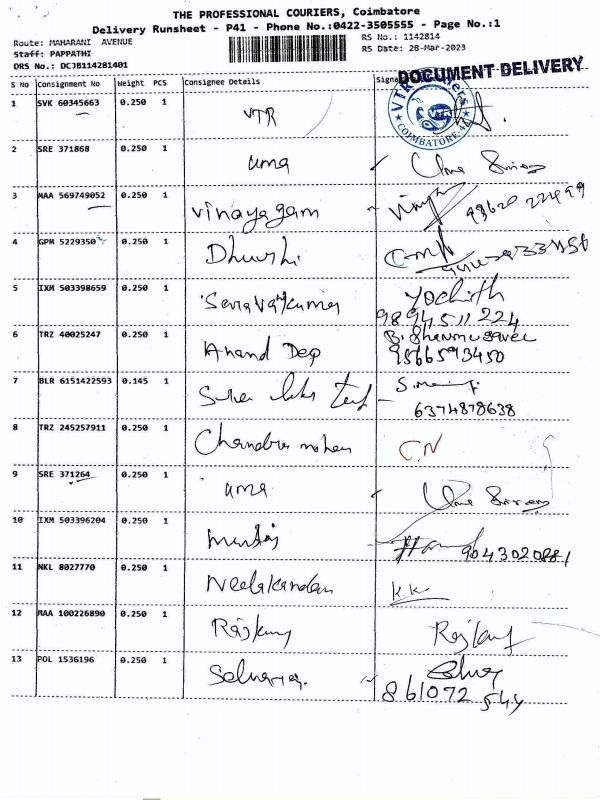 THE PROFESSIONAL COURIERS, Coimbatore
Delivery Runsheet - P41 - Phone No.:0422-3505555 - Page No.:1
Route: MAHARANI AVENUE
RS No.: 1142814
Staff: PAPPATHI
RS Date: 28-Mar-2023
DRS No.: DCJB114281401
DOCUMENT DELIVERY
S No Consignment No Weight PCS Consignee Details
VTR
COIMBATORE
1 SVK 60345663 0.250 1 VTR
2 SRE 371868 0.250 1 uma
3 MAA 569749052 0.250 1 Vinayagam
4 GPM 5229350 0.250 1
5 IXM 503398659 0.250 1
9894511224
6 TRZ 40025247 0.250 1 Anand Dep
9566593450
7 BLR 6151422593 0.145 1
6374878638
8 TRZ 245257911 0.250 1 Chandra mohan C.N
9 SRE 371264 0.250 1 uma
10 IXM 503396204 0.250 1
9043020881
11 NKL 8027770 0.250 1 Neelakandan K.K
12 MAA 100226890 0.250 1
13 POL 1536196 0.250 1
861072 544